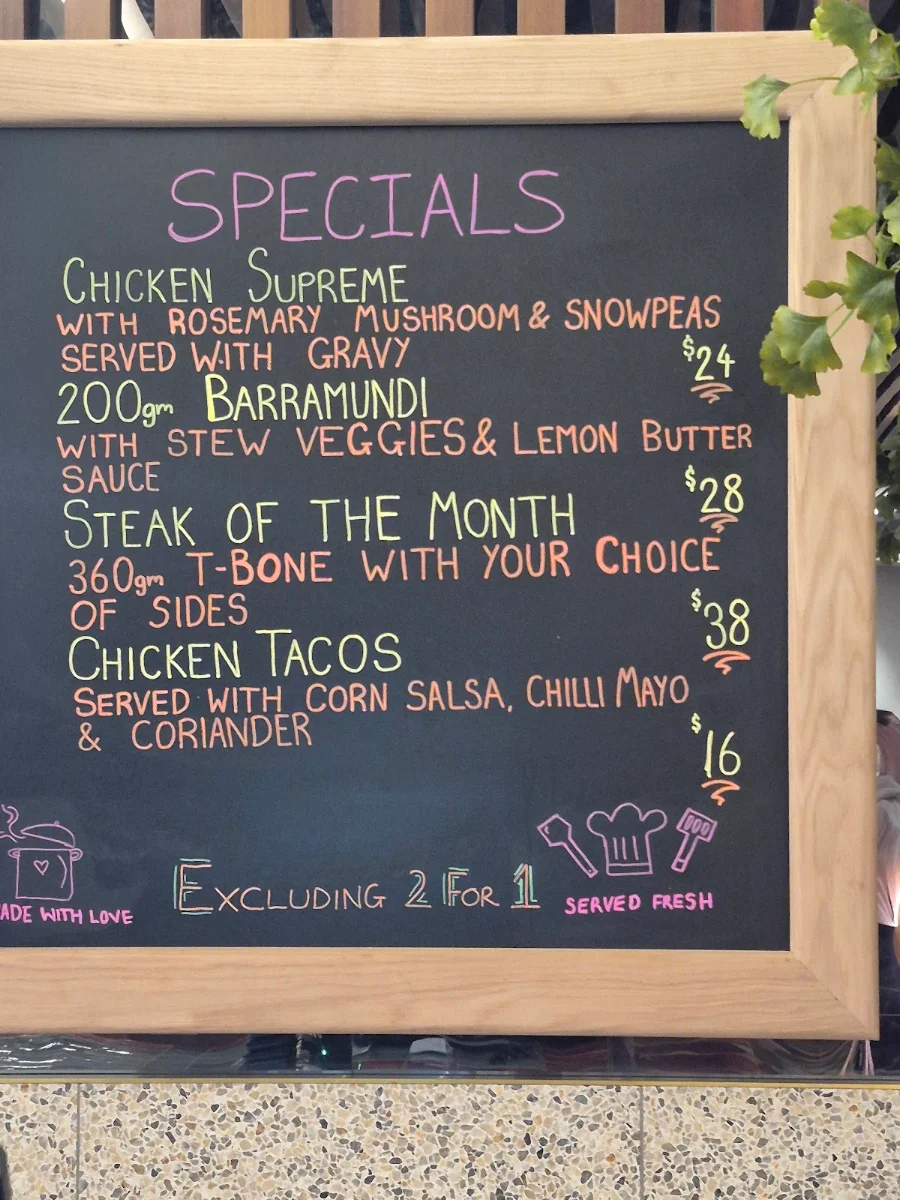 SPECIALS
CHICKEN SUPREME
WITH ROSEMARY MUSHROOM & SNOWPEAS
SERVED WITH GRAVY
$24
200gm BARRAMUNDI
WITH STEW VEGGIES & LEMON BUTTER
SAUCE
$28
STEAK OF THE MONTH
360gm T-BONE WITH YOUR CHOICE
OF SIDES
$38
CHICKEN TACOS
SERVED WITH CORN SALSA, CHILLI MAYO
& CORIANDER
$16
EXCLUDING 2 FOR 1
ADE WITH LOVE
SERVED FRESH